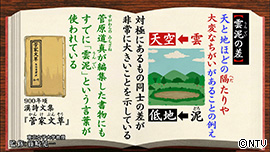 【雲泥の差】
天と地ほどの隔たりや
大変なちがいがあることの例え
天空 ← 雲
低地 ← 泥
対極にあるもの同士の差が
非常に大きいことを示している
菅原道真が編集した書物にも
すでに「雲泥」という言葉が
使われている
900年頃
漢詩文集
『菅家文草』
©NTV